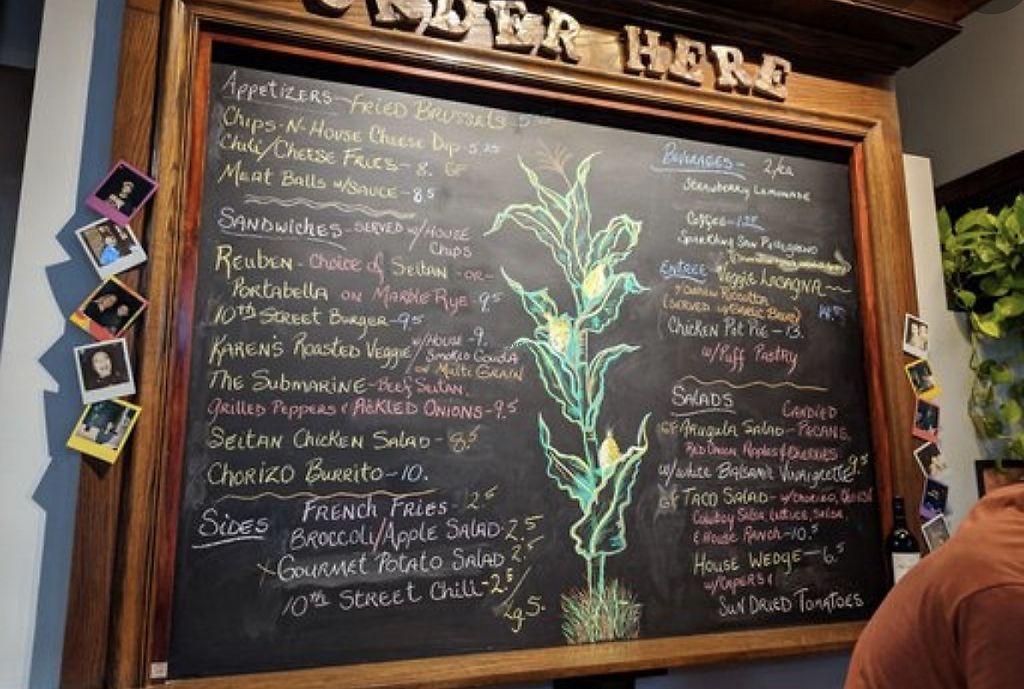 ORDER HERE
APPETIZERS - FRIED BRUSSELS
CHIPS-N-HOUSE CHEESE DIP - 5.25
CHILI/CHEESE FRIES - 8. GF
MEAT BALLS W/SAUCE - 8.5
SANDWICHES - SERVED W/HOUSE
CHIPS
REUBEN - CHOICE OF SEITAN -OR-
PORTABELLA ON MARBLE RYE - 9.5
10TH STREET BURGER - 9.5
KAREN'S ROASTED VEGGIE W/HOUSE - 9.
SMOKED GOUDA
ON MULTI GRAIN
THE SUBMARINE - BEEF SEITAN,
GRILLED PEPPERS & PICKLED ONIONS - 9.5
SEITAN CHICKEN SALAD - 8.5
CHORIZO BURRITO - 10.
SIDES FRENCH FRIES - 2.5
BROCCOLI/APPLE SALAD - 2.5
GOURMET POTATO SALAD 2.5
10TH STREET CHILI - 2.5/
Lg 5.
BEVERAGES - 2/ea
STRAWBERRY LEMONADE
COFFEE -
SPARKLING SAN PELLEGRINO
ENTREE VEGGIE LASAGNA
RICOTTA
(SERVED W/GARLIC BREAD)
CHICKEN POT PIE - 13.
W/PUFF PASTRY
SALADS
CANDIED
GF ARUGULA SALAD - PECANS,
RED ONION, APPLES & CHERRIES
W/WHITE BALSAMIC VINAIGRETTE 9.5
GF TACO SALAD - W/CHORIZO,
COWBOY SALSA, LETTUCE, SALSA,
& HOUSE RANCH - 10.5
HOUSE WEDGE - 6.5
W/CAPERS &
SUN DRIED TOMATOES